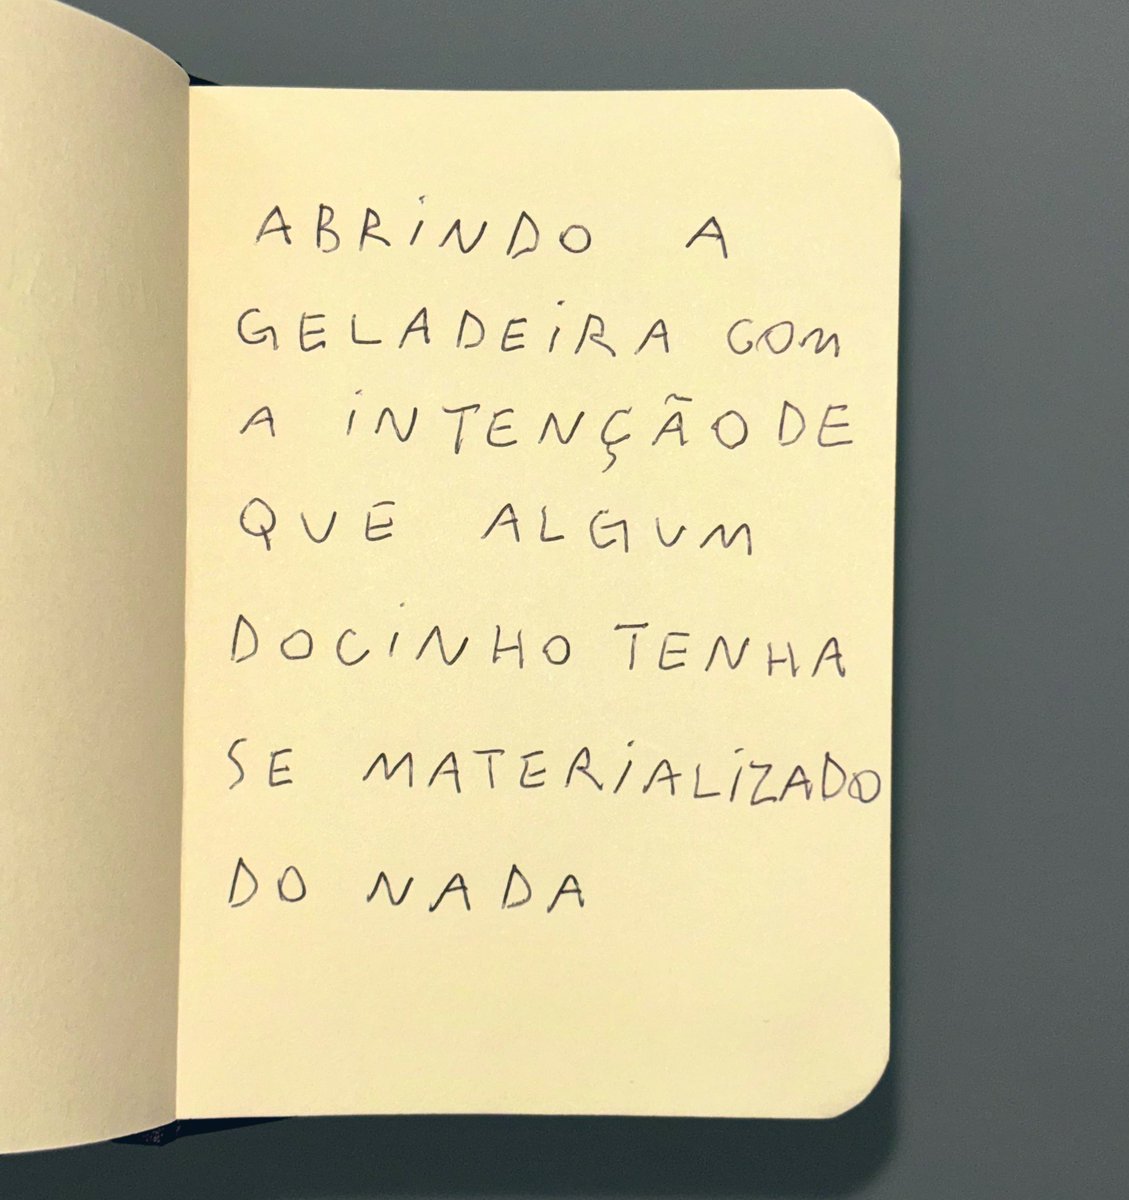 ABRINDO A
GELADEIRA COM
A INTENÇÃO DE
QUE ALGUM
DOCINHO TENHA
SE MATERIALIZADO
DO NADA